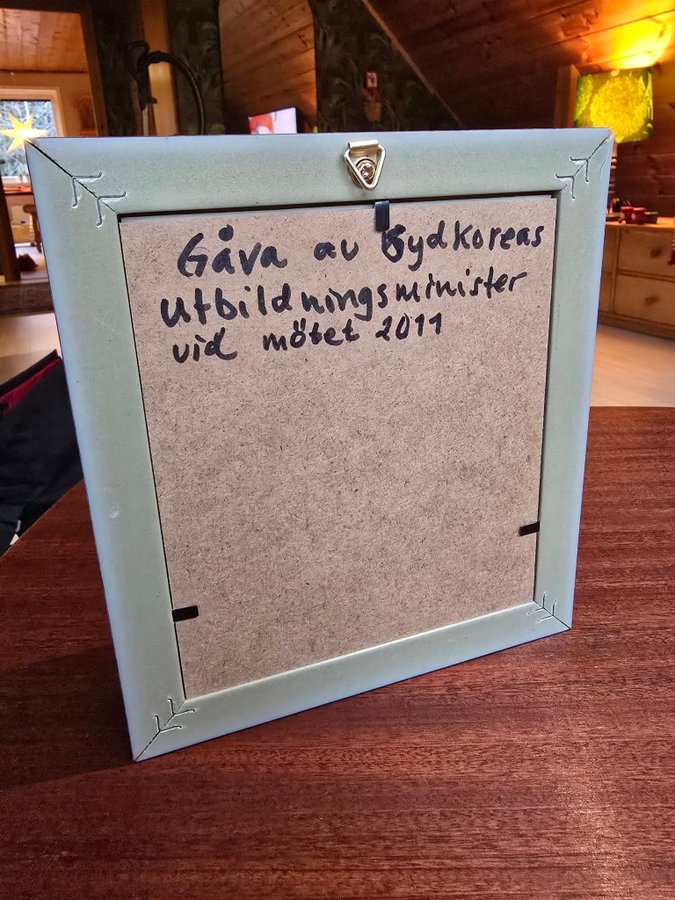 Gåva av Sydkoreas
utbildningsminister
vid mötet 2011